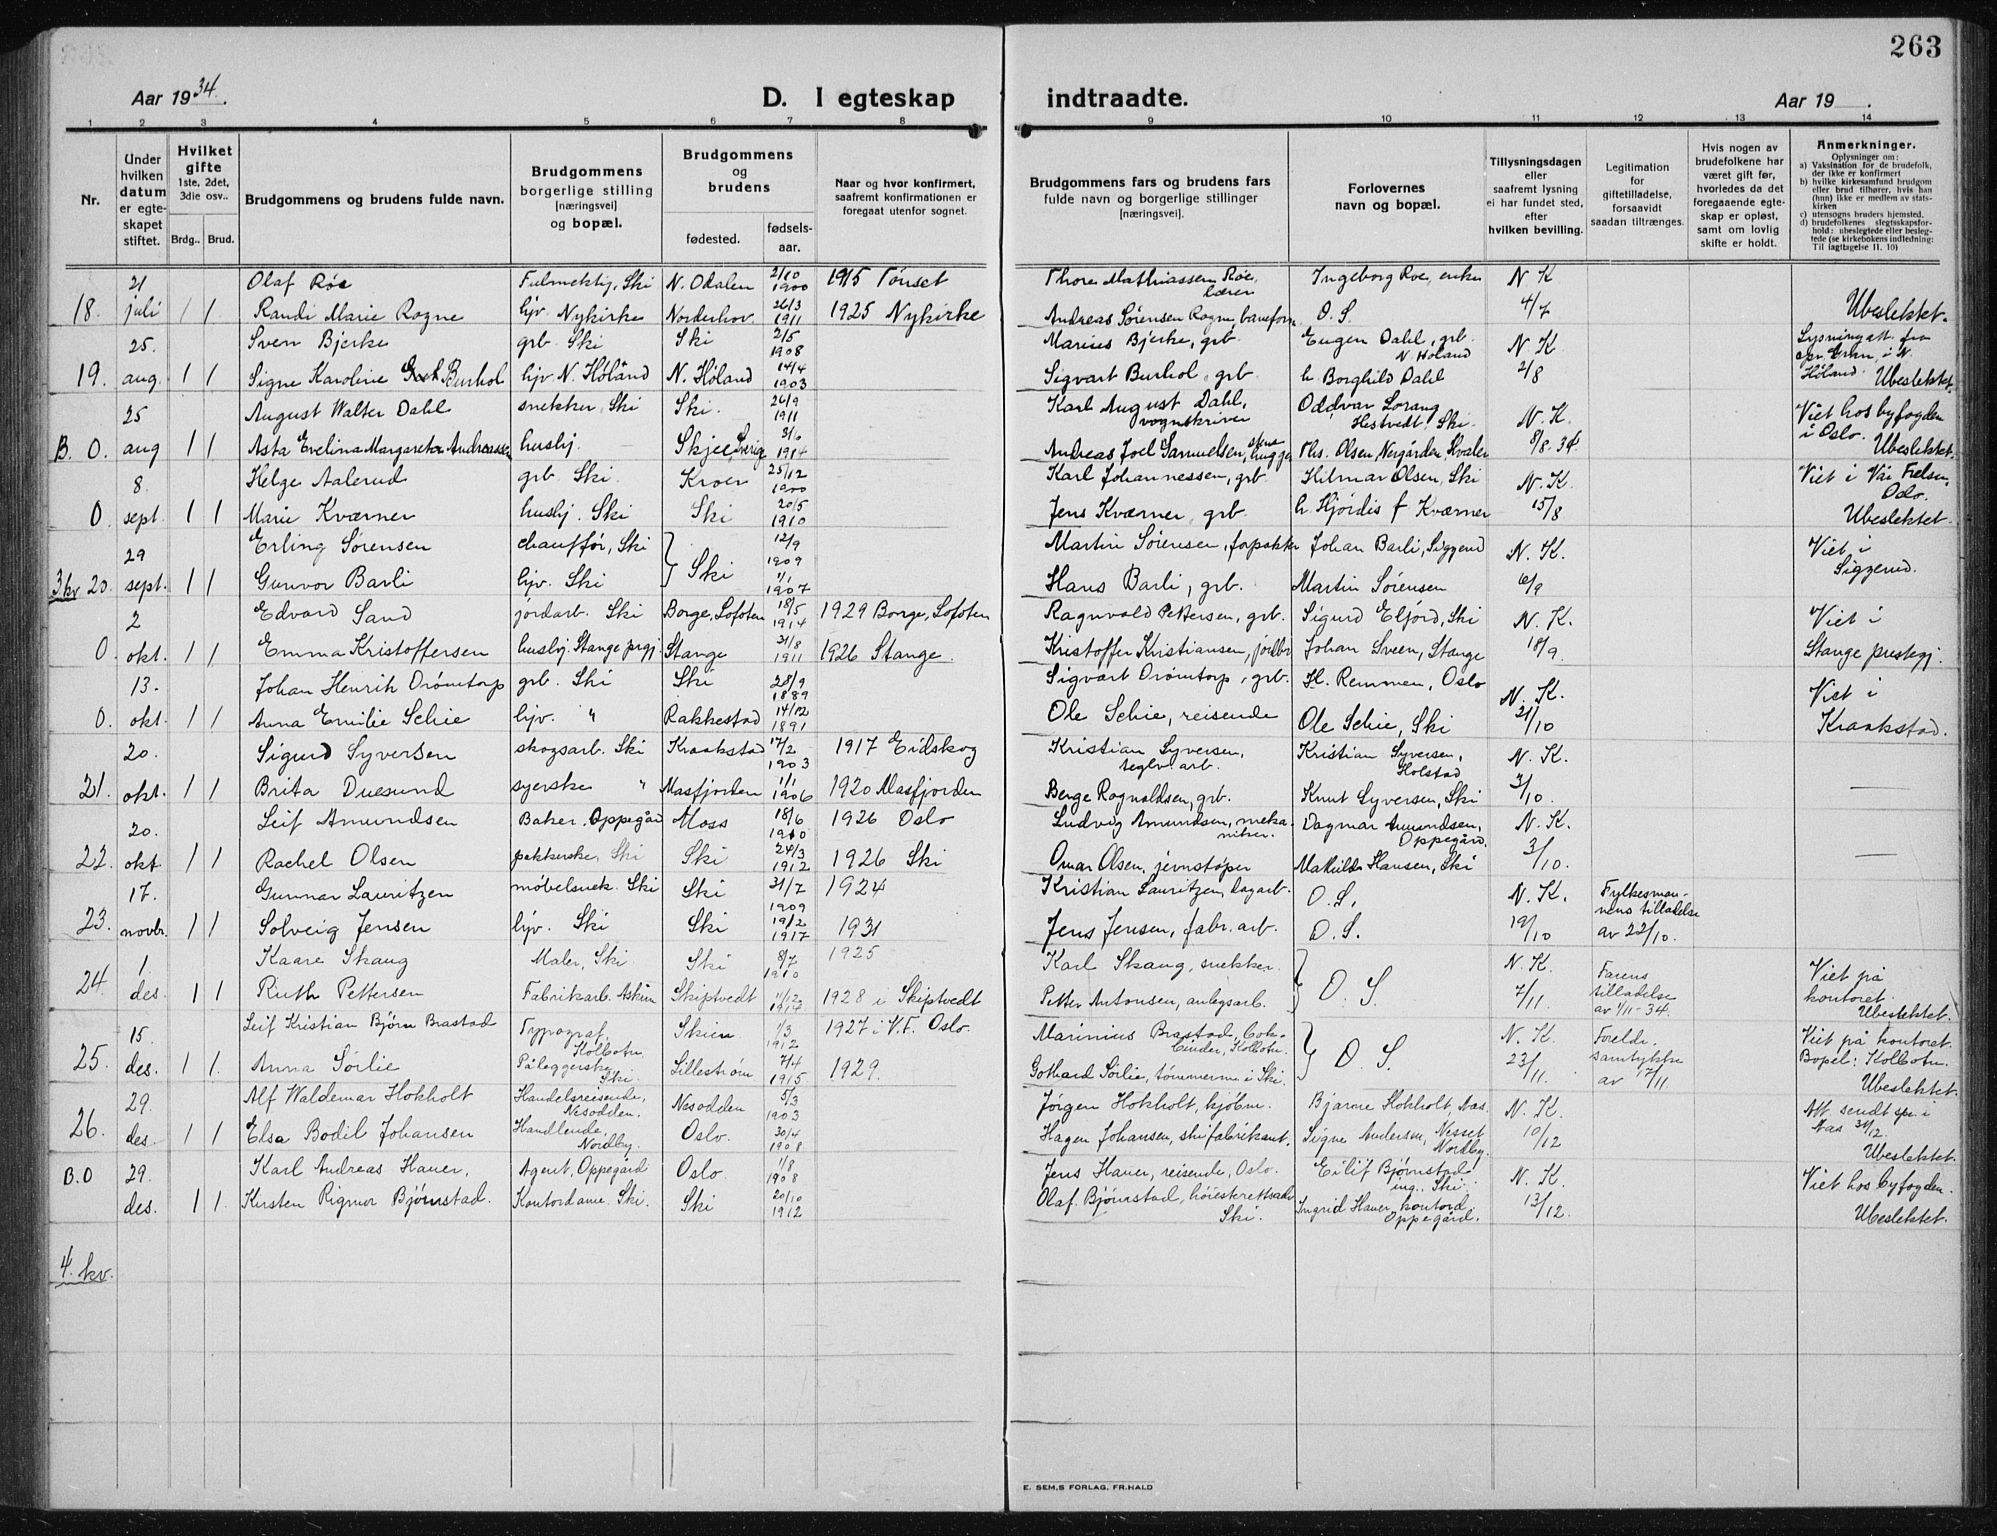 263
Aar 1934.
D. I egteskap indtraadte.
Aar 19 .
1 2 3 4 5 6 7 8 9 10 11 12 13 14
Nr.
Under hvilken datum er egteskapet stiftet.
Hvilket gifte 1ste, 2det, 3die osv..
Brdg.. Brud.
Brudgommens og brudens fulde navn.
Brudgommens borgerlige stilling [næringsvei] og bopæl.
Brudgommens og brudens
fødested. fødselsaar.
Naar og hvor konfirmert, saafremt konfirmationen er foregaat utenfor sognet.
Brudgommens fars og brudens fars fulde navn og borgerlige stillinger [næringsvei].
Forlovernes navn og bopæl.
Tillysningsdagen eller saafremt lysning ei har fundet sted, efter hvilken bevilling.
Legitimation for giftetilladelse, forsaavidt saadan tiltrænges.
Hvis nogen av brudefolkene har været gift før, hvorledes da det foregaaende egteskap er opløst, samt om lovlig skifte er holdt.
Anmerkninger.
Oplysninger om:
a) Vaksination for de brudefolk, der ikke er konfirmert
b) hvilke kirkesamfund brudgom eller brud tilhører, hvis han (hun) ikke er medlem av statskirken
c) utensogns bruders hjemsted.
d) brudefolkenes slegtsskapsforhold: ubeslegtede eller beslegtede (se kirkebokens indledning: Til iagttagelse II. 10)
21 Olaf Røe Fulmektig, Ski N. Odalen 2/10 1900 1915 Tønset Thore Mathiassen Røe, lærer Ingeborg Roe, enke N. K
18. juli 1 1 Randi Marie Rogne hjv. Nykirke Norderhov 26/3 1911 1925 Nykirke Andreas Sørensen Rogne, baneform. O. S. 4/7 Ubeslektet.
25. Sven Bjerke grb. Ski Ski 2/5 1908 Marius Bjerke, grb. Eugen Dahl, grb. N. Høland N. K Lysningatt. fra
19. aug. 1 1 Signe Karoline Burhol hjv. N. Høland N. Høland 14/4 1903 Sigvart Burhol, grb. h. Borghild Dahl 2/8 Høland. Ubeslektet.
25 August Walter Dahl snekker, Ski Ski. 26/9 1911 Karl August Dahl, vognskriver Oddvar Lorang Hestvedt, Ski. N. K. Viet hos byfogden i Oslo.
B. 0 aug 1 1 Asta Evelina Margareta Andreassen husbj. Skjee, Sverig 3/6 1914 Andreas Joel Samuelsen, stenhugger Ths. Olsen, Nergården Hvaler 8/8-34. Ubeslektet.
8. Helge Aalerud grb. Ski. Kroer 25/12 1900 Karl Johannessen, grb. Hilmar Olsen, Ski N. K. Viet i Vår Frelser, Oslo.
0 sept. 1 1 Marie Kværner husbj. Ski Ski 20/5 1910 Jens Kværner, grb. h. Hjördis f Kværner 15/8 Ubeslektet.
29 Erling Sørensen chauffør, Ski Ski 12/9 1909 Martin Sørensen, forpakter Johan Barli, Siggerud N. K. Viet i Siggerud.
3 kv 20. sept. 1 1 Gunvor Barli hjv. Ski 1/1 1907 Hans Barli, grb. Martin Sørensen 6/9
2 Edvard Sand jordarb. Ski Borge, Lofoten 18/5 1914 1929 Borge, Lofoten Ragnvald Pettersen, grb. Sigurd Elfjord, Ski N. K. Viet i
0. okt. 1 1 Emma Kristoffersen husbj. Stange prgj. Stange 31/8 1911 1926 Stange. Kristoffer Kristiansen, jordbr Johan Sveen, Stange 18/9. Stange prestegj.
13. Johan Henrik Drömtorp grb. Ski Ski 28/9 1889 Sigvart Drömtorp, grb. H. Remmen, Oslo N. K. Viet i
0. okt. 1 1 Anna Emilie Schie hjv. " Rakkestad 14/12 1891 Ole Schie, reisende Ole Schie, Ski 21/10 Kraakstad.
20. Sigurd Syversen skogsarb. Ski Kraakstad 17/2 1903 1917 Eidskog Kristian Syversen, teglv. arb. Kristian Syversen, Holstad N. K.
21. okt. 1 1 Brita Duesund syerske " Masfjorden 1/1 1906 1920 Masfjorden Berge Rognaldsen, grb. Knut Syversen, Ski 3/10. —
20. Leif Amundsen Baker, Oppegård Moss 18/6 1910 1926 Oslo Ludvig Amundsen, mekaniker. Dagmar Amundsen, Oppegård. N. K.
22. okt 1 1 Rachel Olsen pakkerske, Ski Ski 24/3 1912 1926 Ski Omar Olsen, jernstøper Mathilde Hansen, Ski 3/10. —
17. Gunnar Lauritzen møbelsnek. Ski Ski 31/7 1909 1924 Kristian Lauritzen, dagarb. O. S. N. K. Fylkesmannens tilladelse
23. novbr. 1 1 Solveig Jensen hjv. Ski Ski 19/2 1917 1931 Jens Jensen, fabr. arb. O. S. 19/10 av 22/10.
1 Kaare Skaug Maler, Ski Ski 8/7 1910 1925 Karl Skaug, snekker. O. S. N. K. Farens tilladelse Viet på kontoret.
24. des. 1 1 Ruth Pettersen Fabrikarb. Askim Skiptvedt 11/12 1914 1928 i Skiptvedt Petter Antonsen, anlegsarb. 7/11. av 1/11-34. Ubeslektet.
15. Leif Kristian Bjørn Brastad Typograf, Kolbotn. Skien 1/3 1912 1927 i V.F. Oslo. Marinius Brastad, bokbinder, Kolbotn. O. S. N. K. Forelde. Viet på kontoret.
25. des. 1 1. Anna Sørlie Påleggerske Ski. Lillestrøm 7/4 1915 1929. Gothard Sørlie, tømmerm. i Ski. 23/11. samtykke av 17/11. Bopel: Kolbotn. Ubeslektet.
29. Alf Waldemar Hokholt Handelsreisende, Nesodden. Nesodden 5/3 1903 Jørgen Hokholt, kjøbm. Bjarne Hokholt, Aas. N. K. Att. sendt spr. i
26. des. 1 1 Elsa Bodil Johansen Handlende, Nordby. Oslo. 30/4 1908 Hagen Johansen, skifabrikant. Signe Andersen, Nesset Nordby. 10/12 Aas 31/12. Ubeslektet.
B.0 29. Karl Andreas Hauer, Agent, Oppegård Oslo. 1/8 1908 Jens Hauer, reisende, Oslo. Eilif Bjørnstad ing. Ski. N. K. Viet hos byfogden.
des. 1 1. Kirsten Rigmor Bjørnstad. Kontordame. Ski. Ski 20/10 1912 Olaf Bjørnstad, høiesterettsadv. Ski. Ingrid Hauer, kontord Oppegård. 13/12. Ubeslektet.
4. kv.
E. SEM,S FORLAG, FR.HALD